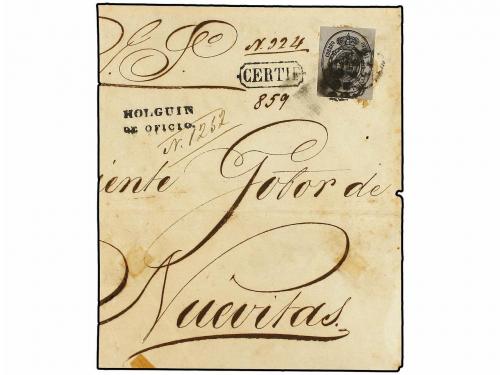 N. 924
CERTIF
859
HOLGUIN
DE OFICIO.
N. 1262
iente Gobor de
Nuevitas.